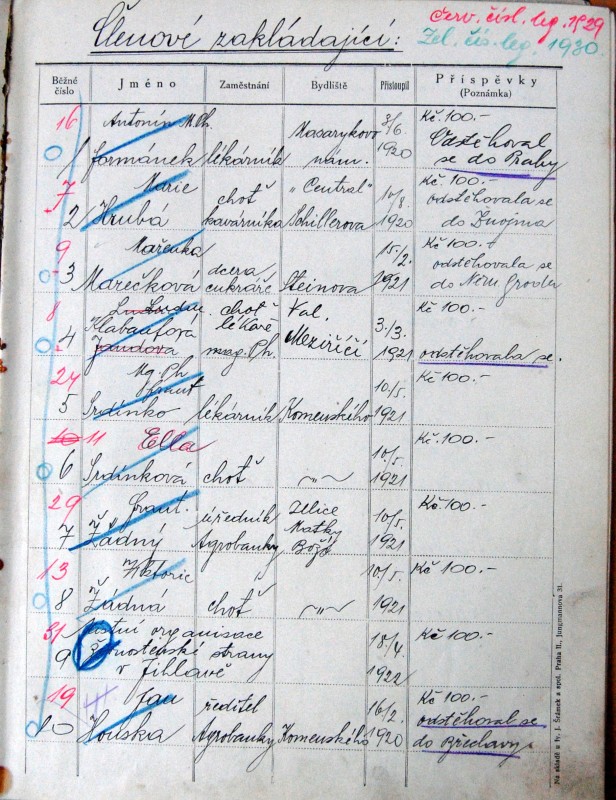 Členové zakládající:
červ. čísl. leg. 1929
Zel. čís. leg. 1930
Běžné číslo
Jméno
Zaměstnání
Bydliště
Přistoupil
Příspěvky
(Poznámka)
16
1
Antonín M. Ph.
Formánek
lékárník
Masarykovo
nám.
3/6.
1920
Kč 100.-
Odstěhoval
se do Prahy
7
2
Marie
Hrubá
choť
kavárníka
"Central"
Schillerova
10/8.
1920
Kč. 100.-
odstěhovala se
do Znojma
9
3
Mařenka
Marečková
dcera
cukráře
Steinova
15./2.
1921
Kč 100.-
odstěhovala se
do Něm. Brodu
8
4
Klabanfová
Jandova
choť
lékaře
mag. Ph.
Val.
Meziříčí
3./3.
1921
Kč 100.-
odstěhovala se.
24
5
Mg. Ph
Frant
Srdínko
lékárník
Komenského
10/5.
1921
Kč 100.-
10 11
6
Ella
Srdínková
choť
-„-
10/5.
1921
Kč 100.-
29
7
Frant.
Žádný
úředník
Agrobanky
Matky
Boží
10/5.
1921
Kč 100.-
13
8
Viktorie
Žádná
choť
-„-
10/5.
1921
Kč 100.-
31
9
Místní organisace
Živnostenské strany
v Jihlavě
18/4.
1922
Kč 100.-
19
10
Jan
Houska
ředitel
Agrobanky
Komenského
16/2.
1920
Kč 100.-
odstěhoval se
do Břeclavy
Na skladě u fy. J. Šrámek a spol. Praha II., Jungmannova 21.